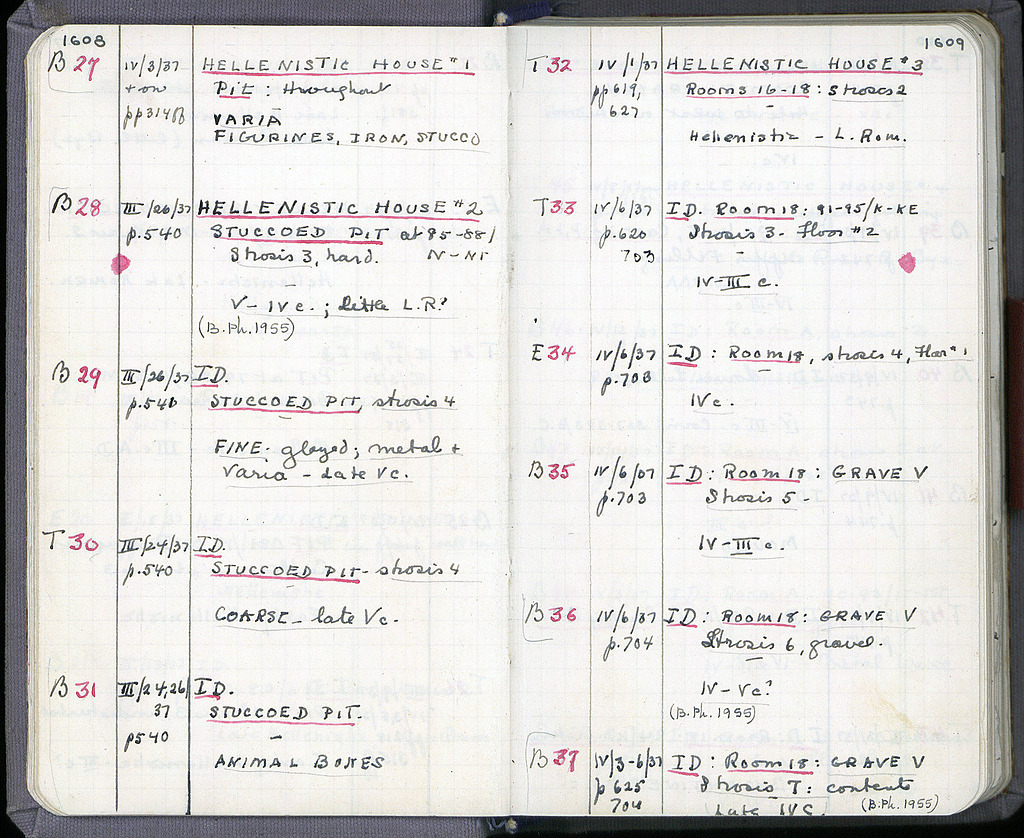 1608
B 27 IV/3/37 HELLENISTIC HOUSE #1
+ on PIT: throughout
pp 314ff VARIA
FIGURINES, IRON, STUCCO
B 28 III/26/37 HELLENISTIC HOUSE #2
p.540 STUCCOED PIT at 85-88/
Strosis 3, hard. IV-NI
V-IVc.; little L.R?
(B.Ph. 1955)
B 29 III/26/37 ID.
p.540 STUCCOED PIT, strosis 4
FINE: glazed; metal +
Varia - late Vc.
T 30 III/24/37 ID.
p.540 STUCCOED PIT - strosis 4
COARSE - late Vc.
B 31 III/24,26/ ID.
37 STUCCOED PIT.
p540
ANIMAL BONES
1609
T 32 IV/1/37 HELLENISTIC HOUSE #3
pp 619, Rooms 16-18: strosis 2
627
Hellenistic - L. Rom.
T 33 IV/6/37 ID. Room 18: 91-95/K-KE
p.620 Strosis 3 - Floor #2
703
IV-III c.
E 34 IV/6/37 ID: Room 18, strosis 4, Floor #1
p.703
IVc.
B 35 IV/6/37 ID: Room 18: GRAVE V
p.703 Strosis 5 -
IV-III c.
B 36 IV/6/37 ID: Room 18: GRAVE V
p.704 Strosis 6, gravel.
IV-Vc?
(B.Ph. 1955)
B 37 IV/3-6/37 ID: Room 18: GRAVE V
p 625 Strosis 7: contents
704 Late IVc. (B.Ph. 1955)